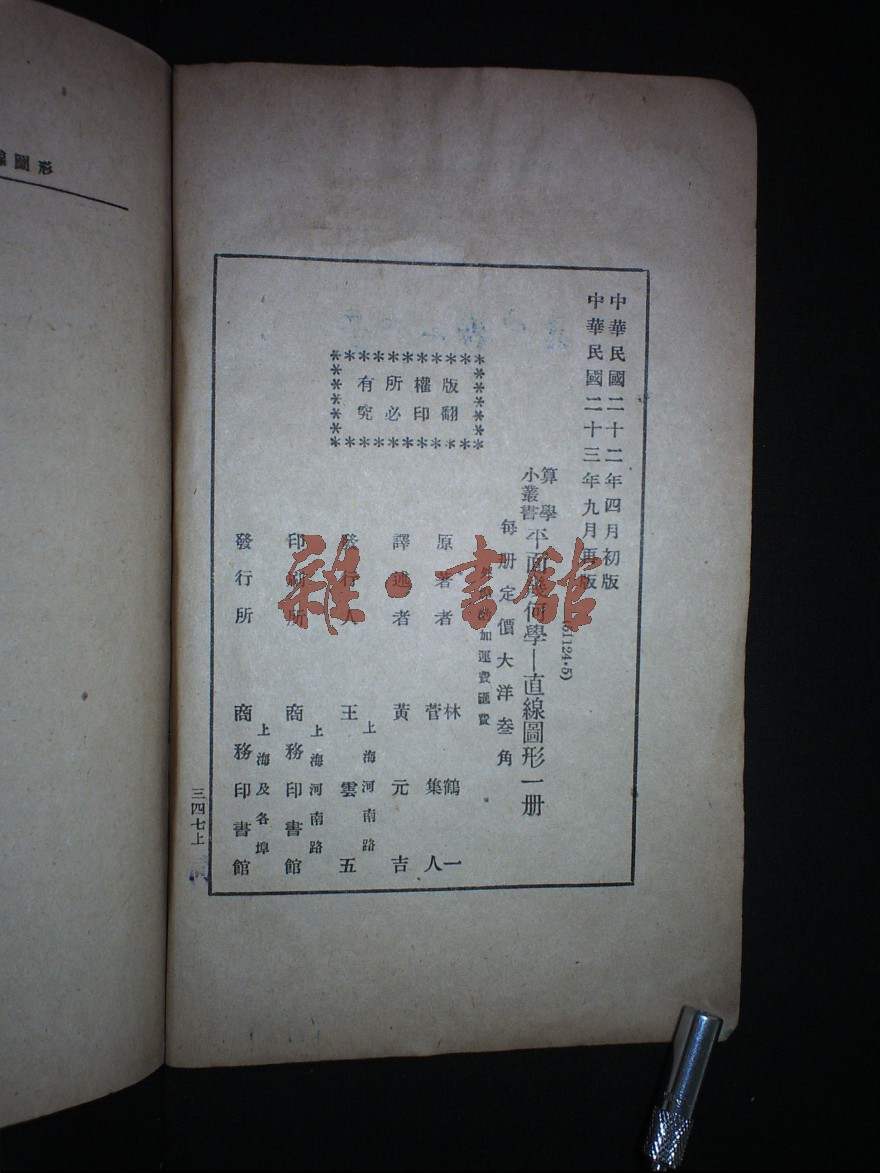 中華民國二十二年四月初版
中華民國二十三年九月再版
(61124·5)
算學
小叢書
平面幾何學—直線圖形一册
每册定價大洋叁角
外埠酌加運費匯費
原著者 林鶴一
菅集人
譯述者 黃元吉
發行人 王雲五
上海河南路
印刷所 商務印書館
上海河南路
發行所 商務印書館
上海及各埠
版權所有
翻印必究
三四七上
圖形
雜·書館